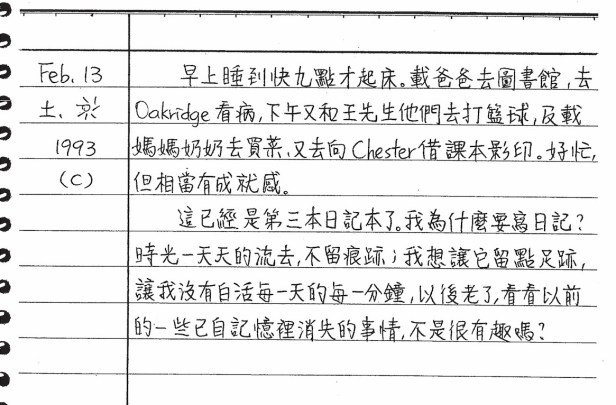 Feb. 13 早上睡到快九點才起床。載爸爸去圖書館,去
土. Oakridge看病,下午又和王先生他們去打籃球,及載
1993 媽媽奶奶去買菜.又去向Chester借課本影印。好忙,
(C) 但相當有成就感。
這已經是第三本日記本了。我為什麼要寫日記?
時光一天天的流去,不留痕跡;我想讓它留點足跡,
讓我沒有白活每一天的每一分鐘,以後老了,看看以前
的一些已自記憶裡消失的事情,不是很有趣嗎?